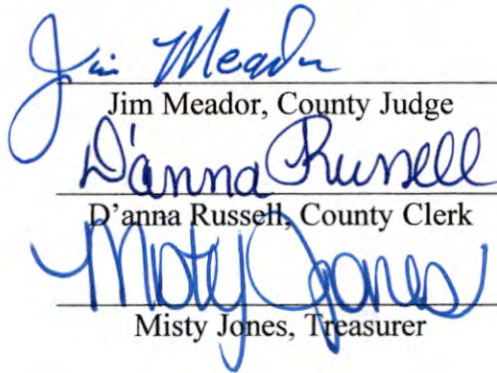 Jim Meador
Jim Meador, County Judge
D'anna Russell
D'anna Russell, County Clerk
Misty Jones
Misty Jones, Treasurer